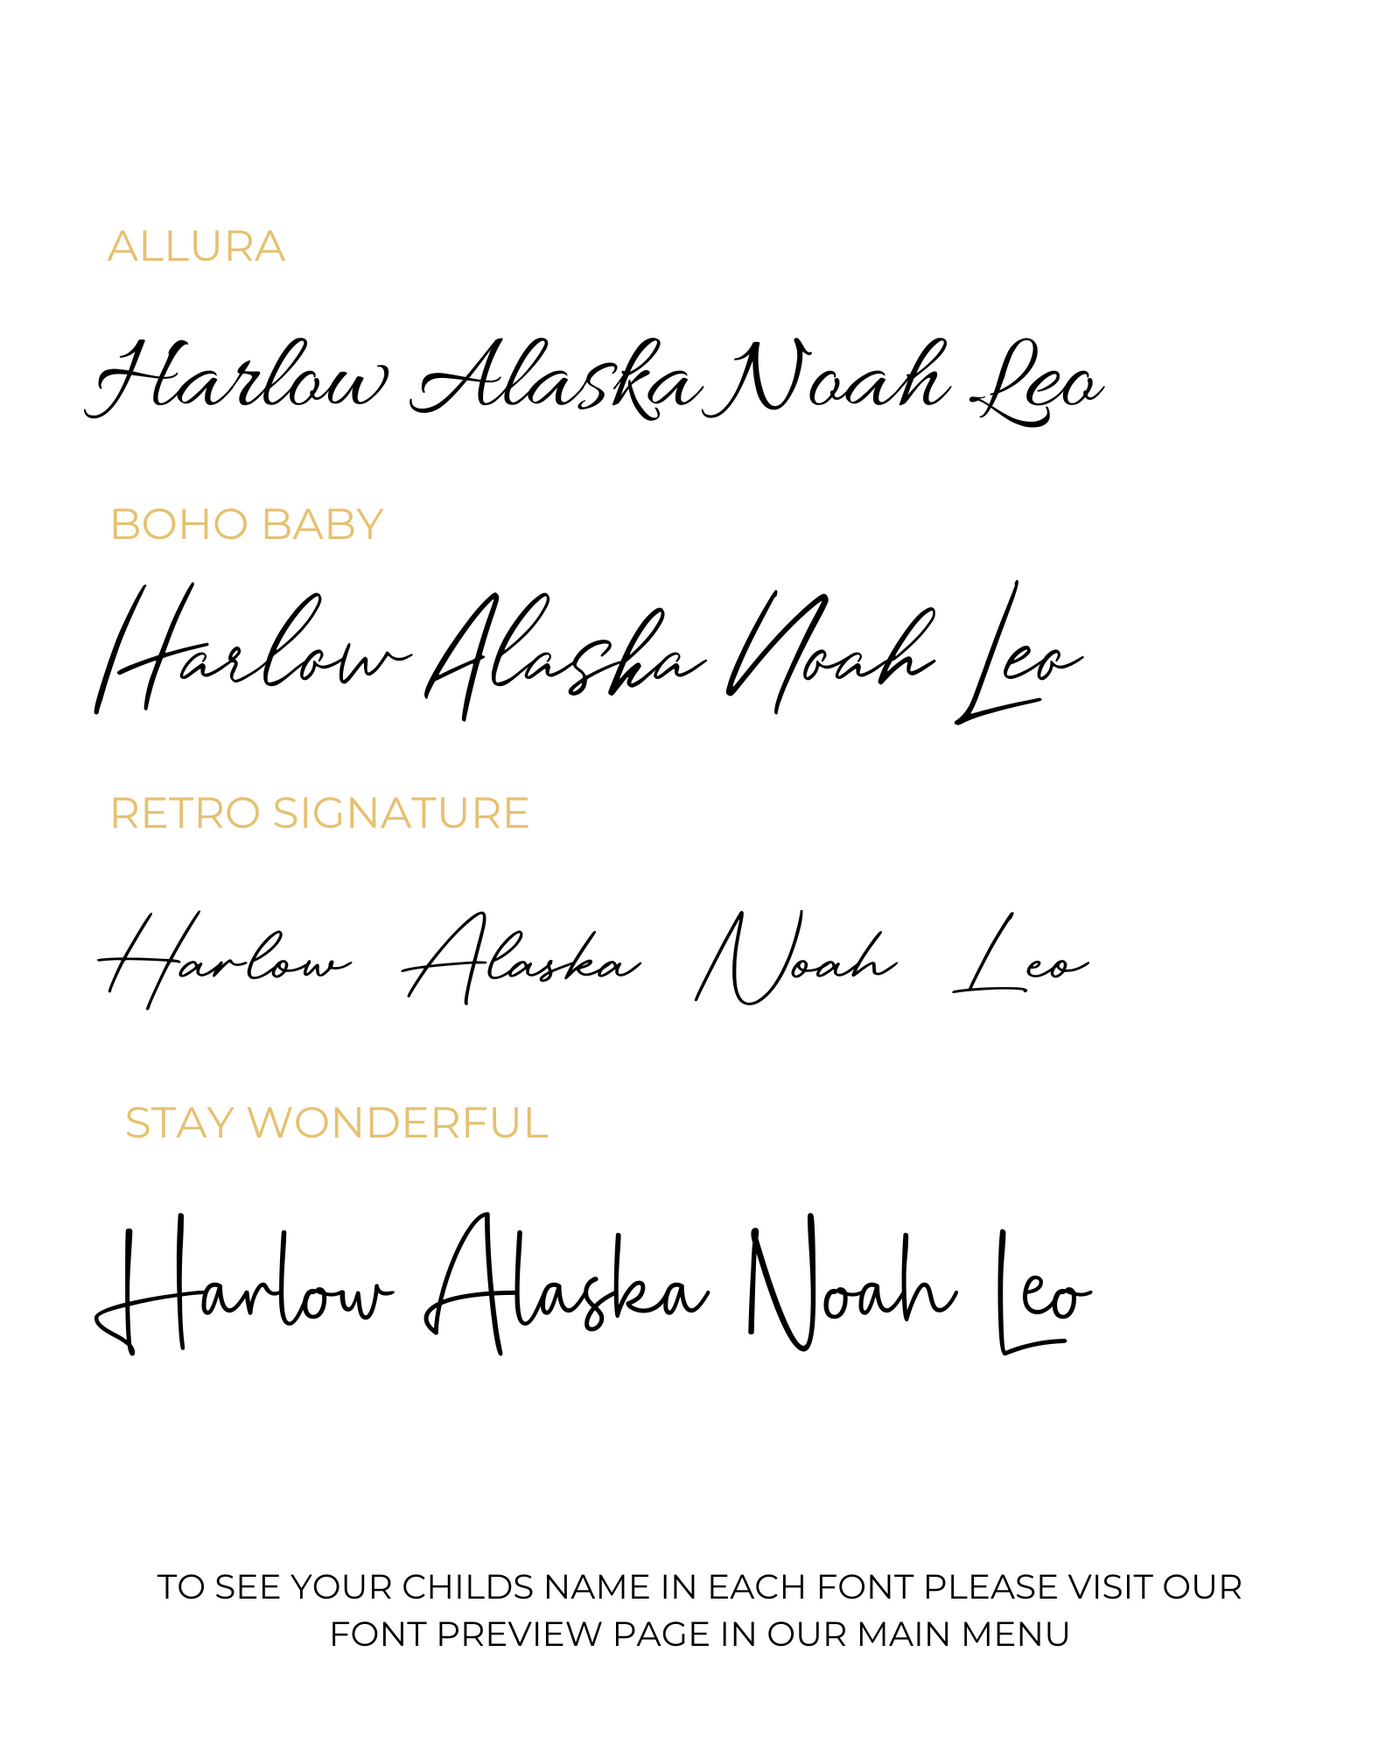 ALLURA
Harlow Alaska Noah Leo
BOHO BABY
Harlow Alaska Noah Leo
RETRO SIGNATURE
Harlow Alaska Noah Leo
STAY WONDERFUL
Harlow Alaska Noah Leo
TO SEE YOUR CHILDS NAME IN EACH FONT PLEASE VISIT OUR
FONT PREVIEW PAGE IN OUR MAIN MENU